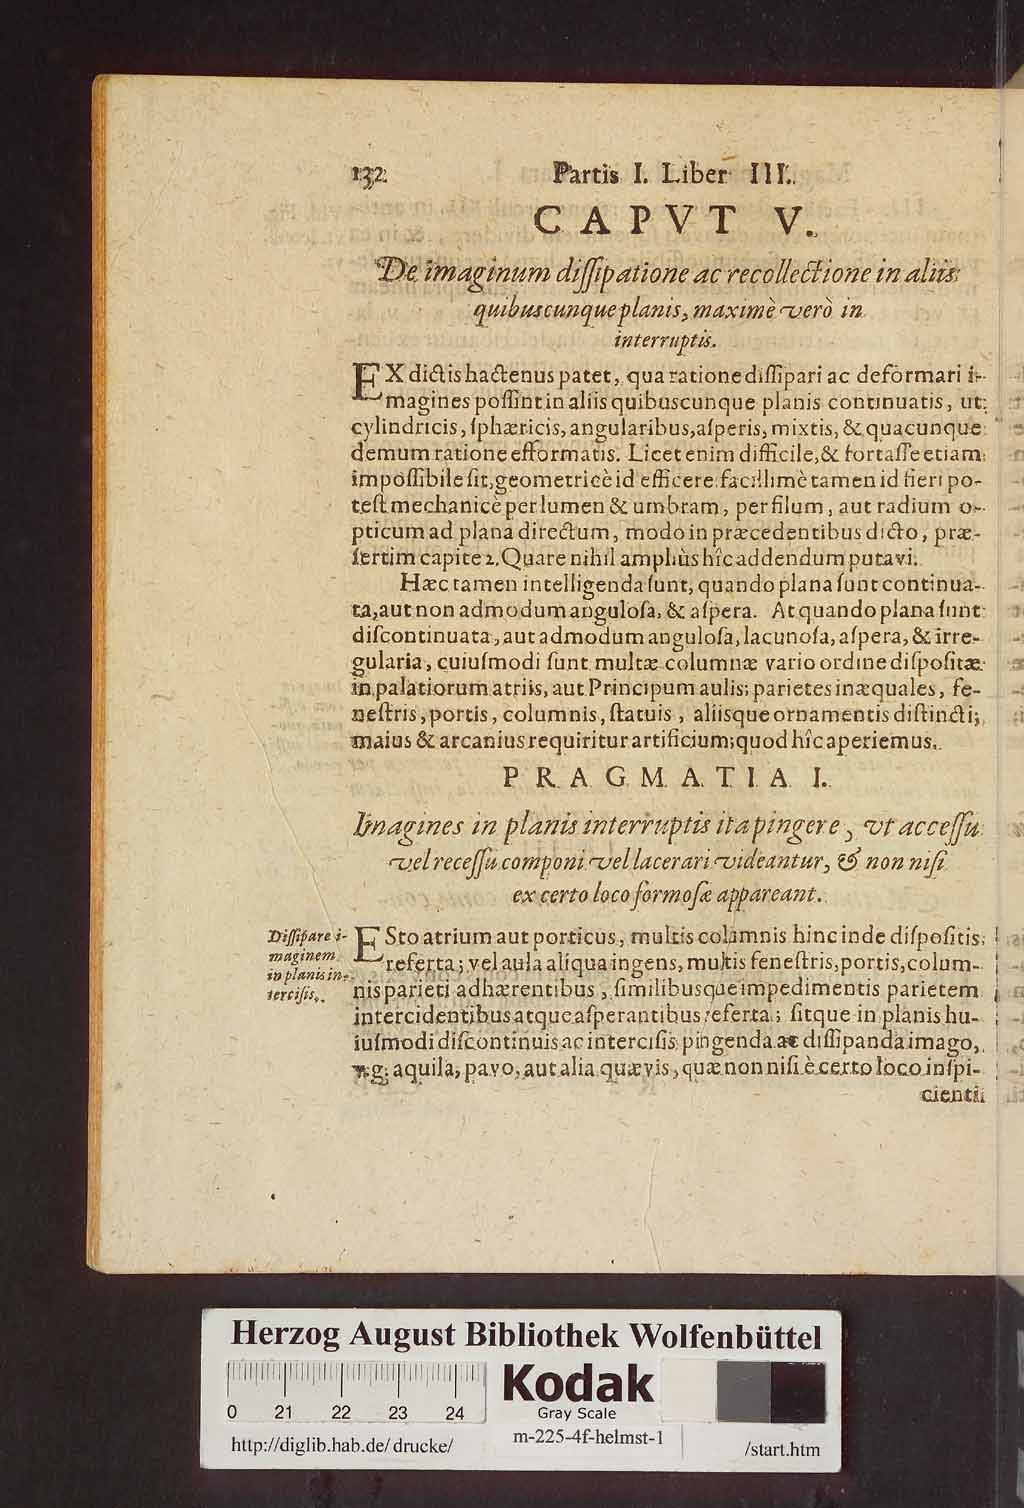 132 Partis I. Liber III.
CAPVT V.
De imaginum diſſipatione ac recollectione in aliis
quibuscunque planis, maximè verò in
interruptis.
EX dictis hactenus patet, qua ratione diſſipari ac deformari i-
magines poſſint in aliis quibuscunque planis continuatis, ut
cylindricis, ſphæricis, angularibus, aſperis, mixtis, & quacunque
demum ratione efformatis. Licet enim difficile, & fortaſſe etiam
impoſſibile ſit, geometricè id efficere: facillimè tamen id fieri po-
teſt mechanicè per lumen & umbram, per filum, aut radium o-
pticum ad plana directum, modo in præcedentibus dicto, præ-
ſertim capite 2. Quare nihil ampliùs hîc addendum putavi.
Hæc tamen intelligenda ſunt, quando plana ſunt continua-
ta, aut non admodum anguloſa, & aſpera. At quando plana ſunt
diſcontinuata, aut admodum anguloſa, lacunoſa, aſpera, & irre-
gularia, cuiuſmodi ſunt multæ columnæ vario ordine diſpoſitæ
in palatiorum atriis, aut Principum aulis; parietes inæquales, fe-
neſtris, portis, columnis, ſtatuis, aliisque ornamentis diſtincti;
maius & arcanius requiritur artificium; quod hîc aperiemus.
PRAGMATIA I.
Imagines in planis interruptis ita pingere, vt acceſſu
vel receſſu componi vel lacerari videantur, & non niſi
ex certo loco formoſæ appareant.
Diſſipare i-
maginem
in planis in-
terciſis.
ESto atrium aut porticus, multis columnis hinc inde diſpoſitis
referta; vel aula aliqua ingens, multis feneſtris, portis, colum-
nis parieti adhærentibus, ſimilibusque impedimentis parietem
intercidentibus atque aſperantibus referta; ſitque in planis hu-
iuſmodi diſcontinuis ac interciſis pingenda ac diſſipanda imago,
v.g. aquila, pavo, aut alia quævis, quæ non niſi è certo loco inſpi-
cienti
Herzog August Bibliothek Wolfenbüttel
0 21 22 23 24
Kodak
Gray Scale
http://diglib.hab.de/drucke/ m-225-4f-helmst-1 /start.htm